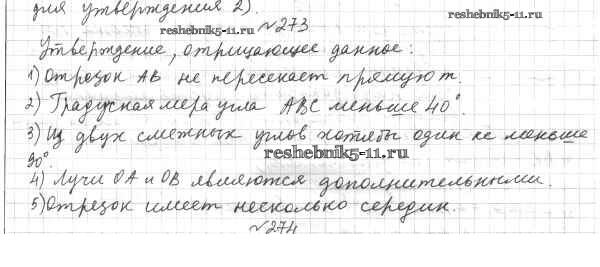 для утверждения 2).
reshebnik5-11.ru
reshebnik5-11.ru
№273
Утверждение, отрицающее данное:
1) Отрезок AB не пересекает прямую m.
2) Градусная мера угла ABC меньше 40°.
3) Из двух смежных углов хотябы один не меньше
reshebnik5-11.ru
90°.
4) Лучи OA и OB являются дополнительными.
5) Отрезок имеет несколько середин.
№274